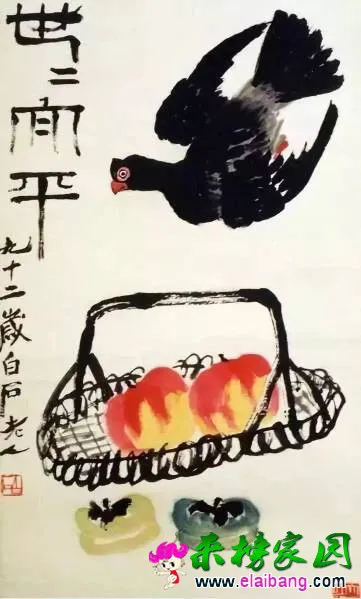 世二平
九十二歲白石老人
来榜家园
www.elaibang.com